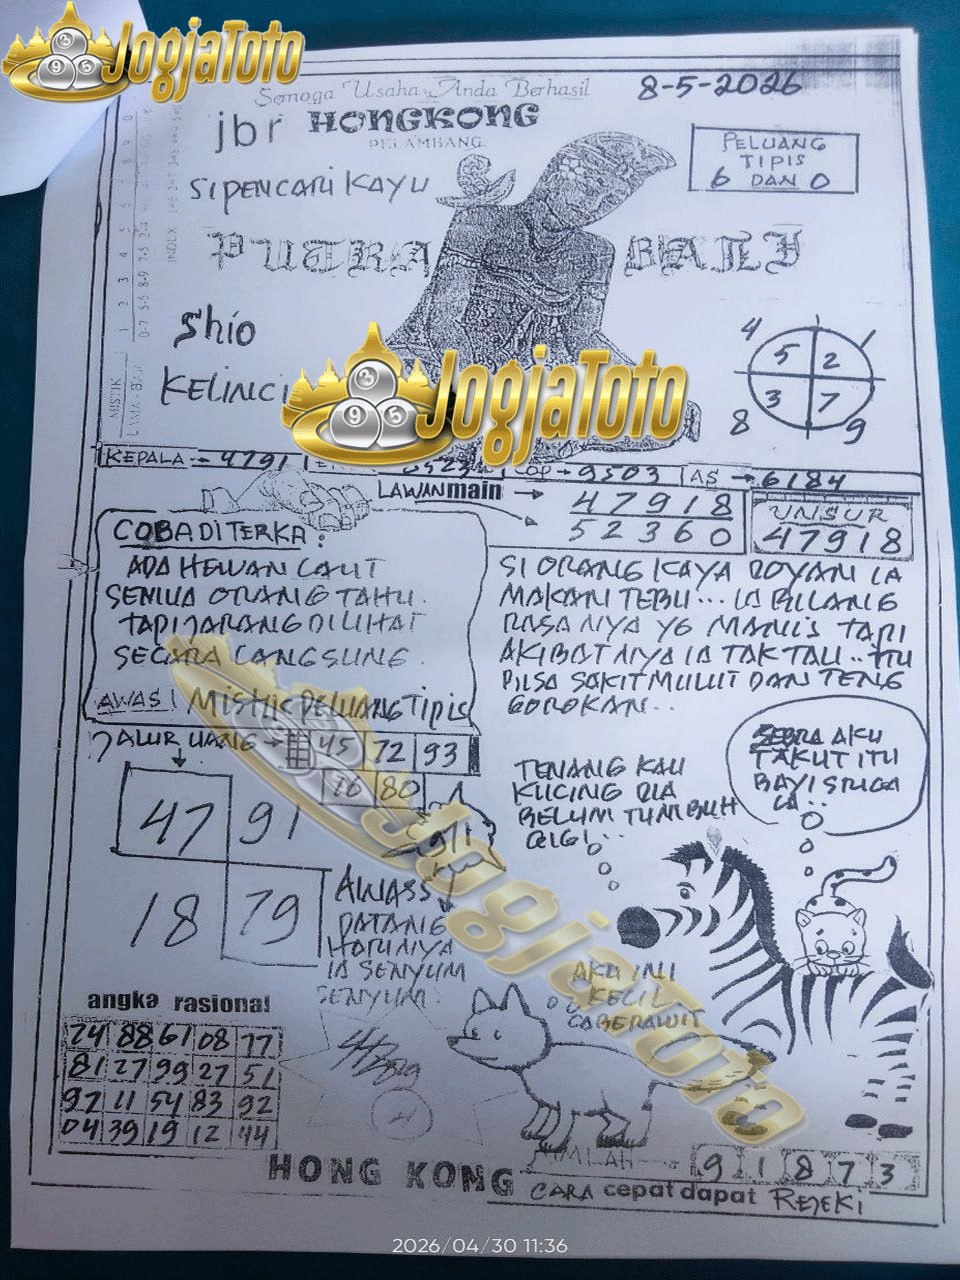 JogjaToto
Semoga Usaha Anda Berhasil
8-5-2026
jbr HONGKONG
PELAMBANG
PELUANG
TIPIS
6 DAN 0
SIPENCARI KAYU
PUTRA BALI
Shio
KELINCI
4 1
5 2
3 7
8 9
JogjaToto
KEPALA → 4791
COP → 9503
AS → 6184
LAWAN main → 47918
52360
UNSUR
47918
COBA DITERKA :
ADA HEWAN LAUT
SEMUA ORANG TAHU.
TAPI JARANG DILIHAT
SECARA LANGSUNG.
AWAS! MISTIK PELUANG TIPIS
SI ORANG KAYA DOYAN IA
MAKAN TEBU... IA BILANG
RASANYA YG MANIS TAPI
AKIBATNYA IA TAK TAU.. ITU
BISA SAKIT MULUT DAN TENG
GOROKAN..
ALUR UANG → 45 72 93
76 80
47 91
18 79
TENANG KAU
KUCING DIA
BELUM TUMBUH
GIGI...
AKU
TAKUT ITU
BAYI SINGA
LA..
AWASS
DATANG
HARINYA
IA SENYUM
SENYUM.
AKU INI
KECIL
CABERAWIT
JogjaToto
angka rasional
74 88 61 08 77
81 27 99 27 51
97 11 54 83 92
04 39 19 12 44
JUMLAH → 9 1 8 7 3
HONG KONG CARA cepat dapat REJEKI
2026/04/30 11:36